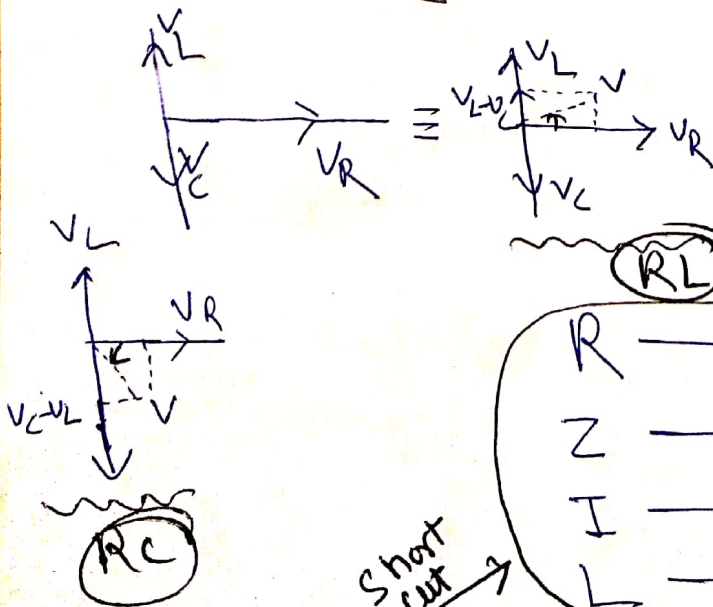 V_L
V_C
V_R
≡
V_L
V_L-V_C
V
V_R
V_C
RL
V_L
V_R
V_C-V_L
V
RC
R —
Z —
I —
L —
Short
cut